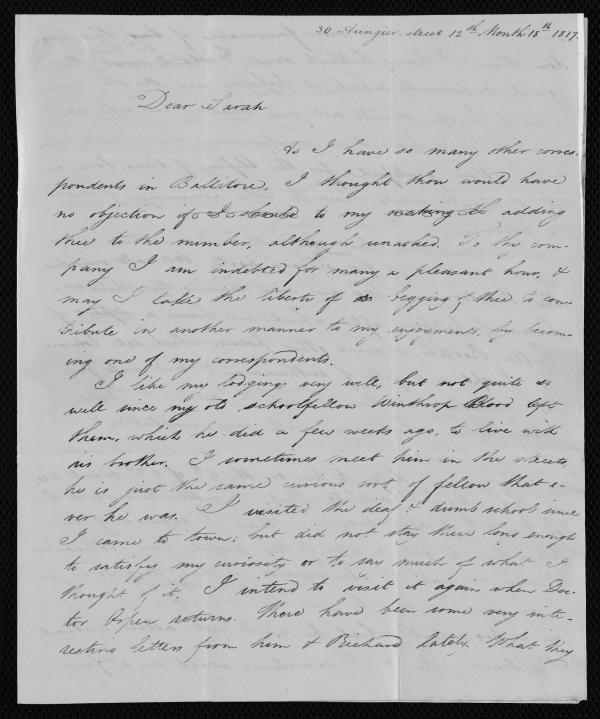 30 Aungier street 12th Month 18th 1817.
Dear Sarah
As I have so many other corres-
pondents in Ballitore, I thought thou would have
no objection if I should to my making the adding
thee to the number, although unasked. To thy com-
pany I am indebted for many a pleasant hour, &
may I take the liberty of begging of thee to con-
tribute in another manner to my enjoyments, by becom-
ing one of my correspondents.
I like my lodgings very well, but not quite so
well since my old schoolfellow Winthrop Wood left
them, which he did a few weeks ago, to live with
his brother. I sometimes meet him in the streets,
he is just the same curious sort of fellow that e-
ver he was. I visited the deaf & dumb school since
I came to town; but did not stay there long enough
to satisfy my curiosity or to say much of what I
thought of it. I intend to visit it again when Doc-
tor Orpen returns. There have been some very inte-
resting letters from him & Richard lately. What they